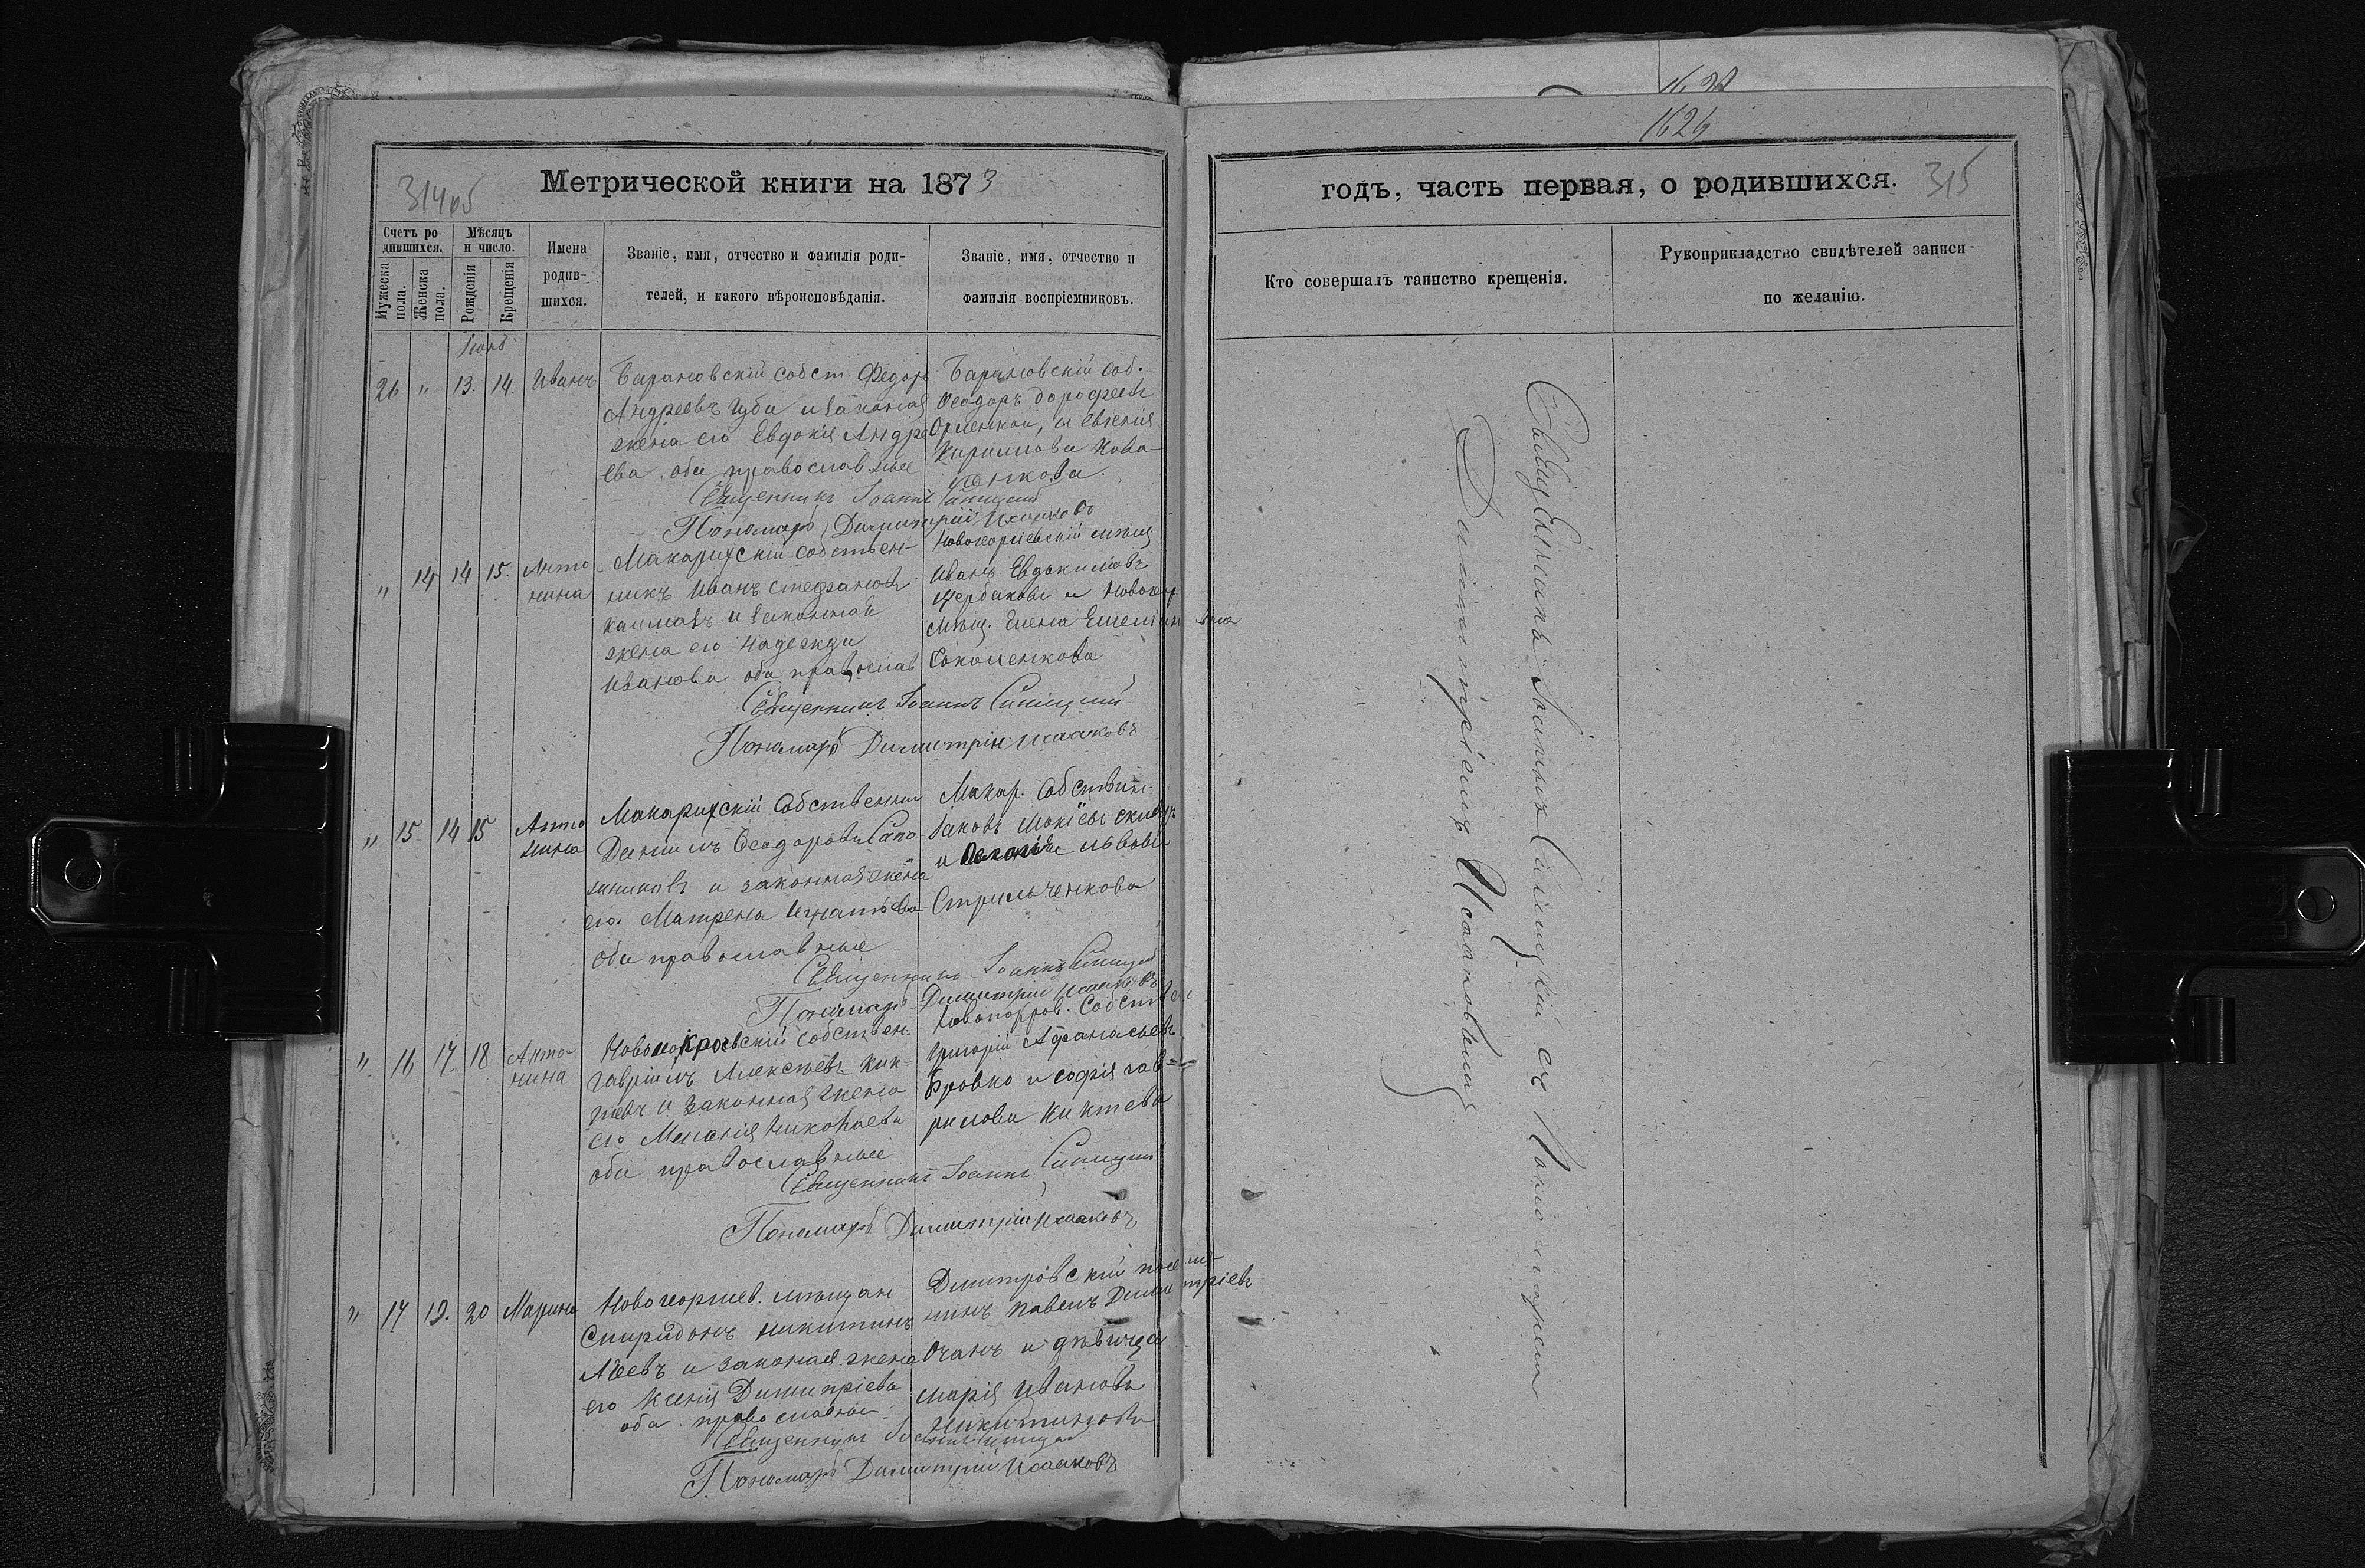 1624
314 об
Метрической книги на 1873
годъ, часть первая, о родившихся.
315
Счетъ родившихся.
Мужеска пола.
Женска пола.
Мѣсяцъ и число.
Рожденія
Крещенія
Имена родившихся.
Званіе, имя, отчество и фамилія роди-
телей, и какого вѣроисповѣданія.
Званіе, имя, отчество и
фамилія воспріемниковъ.
Кто совершалъ таинство крещенія.
Рукоприкладство свидѣтелей записи
по желанію.
26 " 13. 14. Иванъ
Барановскій собст Федоръ
Андреевъ Губа и законная
жена его Евдокія Андре
ева, оба православные
Барановскій соб.
Феодоръ Дорофеевъ
и Евгенія
Кирилова
Священникъ Іоаннъ Синицкій
Пономарь Димитрій Исааковъ
" 14 14 15. Анто
нина
Макарихскій собствен-
никъ Иванъ Стефановъ
и законная
жена его Надежда
Иванова оба православ
Новогоргіевскій мѣщ
Иванъ Евдокимовъ
Щербаковъ и Новогеор
мѣщ. Елена
Соколенкова
Священникъ Іоаннъ Синицкій
Пономарь Димитрій Исааковъ
" 15 14 15 Анто
нина
Макарихскій собственник
Даніилъ Феодоровъ Сапо
жниковъ и законная жена
его Матрена Игнатьева
оба православные
Макар. собствен-
Іаковъ
и Пелагія Львова
Стрильченкова
Священникъ Іоаннъ Синицкій
Пономарь Димитрій Исааковъ
" 16 17 18 Анто-
нина
Новопокровскій собствен.
Гавріилъ Алексѣевъ Кик-
тевъ и законная жена
его Меланія Николаева
оба православные
Новопокров. собствен
Григорій Афанасьевъ
Бровко и Софія Гав-
рилова Киктева
Священникъ Іоаннъ Синицкій
Пономарь Димитрій Исааковъ
" 17 19. 20 Марина
Новогеоргиев. мѣщан
Спиридонъ Никитинъ
и законная жена
его Ксенія Димитріева
оба православные
Димитровскій
Павелъ Димитріевъ
и дѣвица
Марія Иванова
Никитинова
Священникъ Іоаннъ Синицкій
Пономарь Димитрій Исааковъ
Священникъ Іоаннъ Синицкій съ Пономаремъ
Димитріемъ Исааковымъ